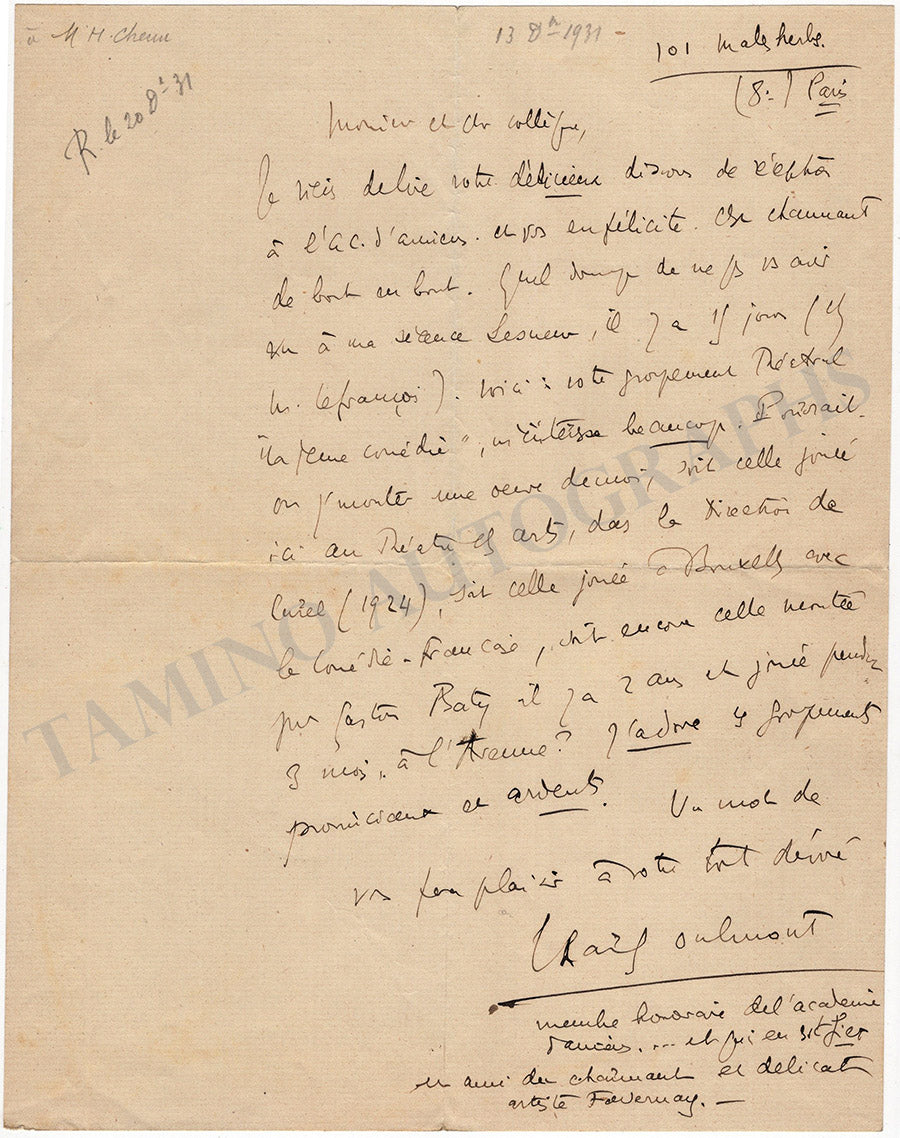 à M H. Chenu
13 Dbre 1931 -
R. le 20 D. 31
101 malesherbes.
(8e) Paris
Monsieur et cher collègue,
Je viens de lire votre délicieux discours de réception
à l'Ac. d'amiens. et vs en félicite. C'est charmant
de bout en bout. Quel dommage de ne pas vs avoir
vu à ma séance Lesueur, il y a 15 jours (
M. Lefrançois). Voici : votre groupement Théâtral
"la Jeune comédie", m'intéresse beaucoup. Pourrait-
on y monter une oeuvre de moi, soit celle jouée
ici au Théâtre des arts, dans la Direction de
(1924), soit celle jouée à Bruxelles avec
la Comédie-Française, soit encore celle montée
par Gaston Baty il y a 2 ans et jouée pendant
3 mois, à l'Avenue? J'adore ces groupements
provinciaux et ardents. Un mot de
vos fera plaisir à votre tout dévoué
Charles Oulmont
membre honoraire de l'academie
d'amiens.... et qui en est fier
en ami du charmant et délicat
artiste Favernay. -
TAMINO AUTOGRAPHS